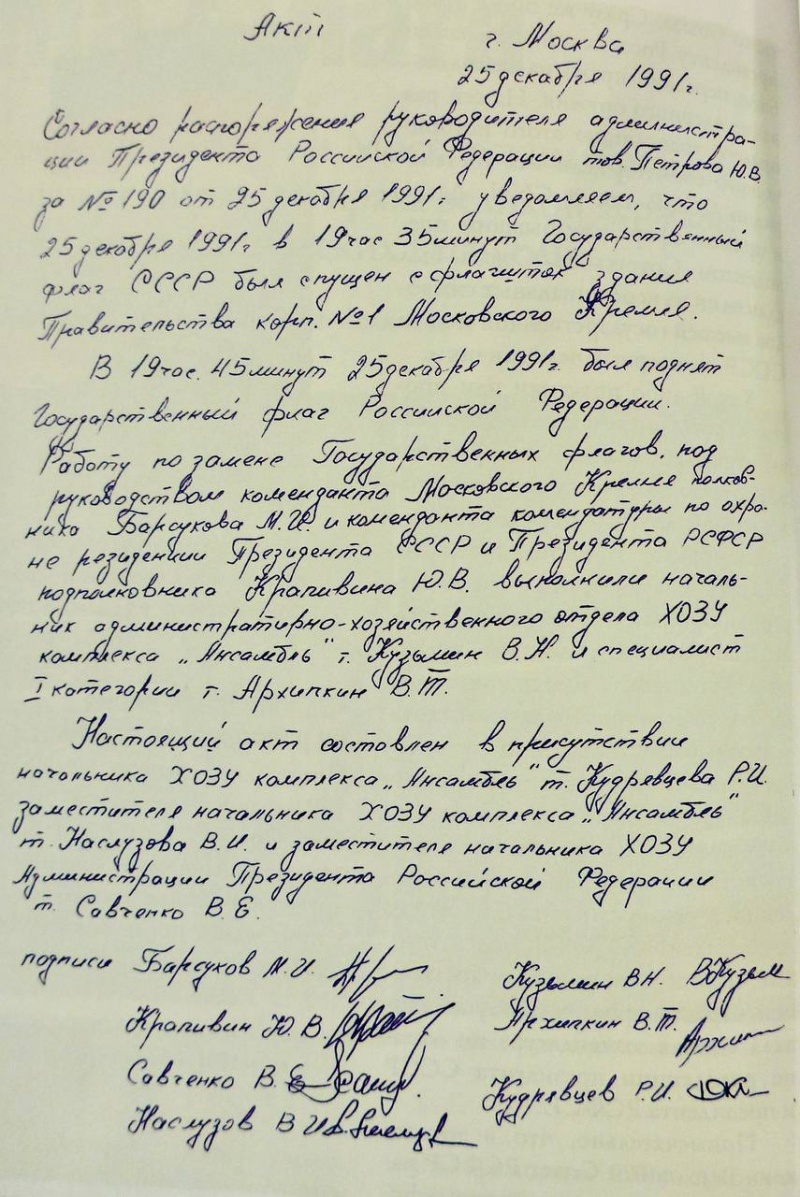 Акт
г. Москва
25 декабря 1991г.
Согласно распоряжения руководителя администра-
ции Президента Российской Федерации тов. Петрова Ю.В.
за №190 от 25 декабря 1991г. уведомляем, что
25 декабря 1991г в 19час 35минут Государственный
флаг СССР был спущен с флагшток здания
Правительства корп. №1 Московского Кремля.
В 19час. 45минут 25 декабря 1991г. был поднят
Государственный флаг Российской Федерации.
Работу по замене Государственных флагов, под
руководством коменданта Московского Кремля полков-
ника Барсукова М.И. и коменданта комендатуры по охра-
не резиденции Президента СССР и Президента РСФСР
подполковника Крапивина Ю.В. выполнили началь-
ник административно-хозяйственного отдела ХОЗУ
комплекса „Ансамбль" т. Кузьмин В.Н. и специалист
I категории т. Архипкин В.Т.
Настоящий акт составлен в присутствии
начальника ХОЗУ комплекса „Ансамбль" т. Кудрявцева Р.И.
заместителя начальника ХОЗУ комплекса „Ансамбль"
т. Наслузова В.И. и заместителя начальника ХОЗУ
Администрации Президента Российской Федерации
т. Савченко В.Е.
подписи Барсуков М.И.
Крапивин Ю.В.
Савченко В.Е.
Наслузов В И
Кузьмин ВН. ВКузьм
Архипкин В.Т.
Архи
Кудрявцев Р.И.